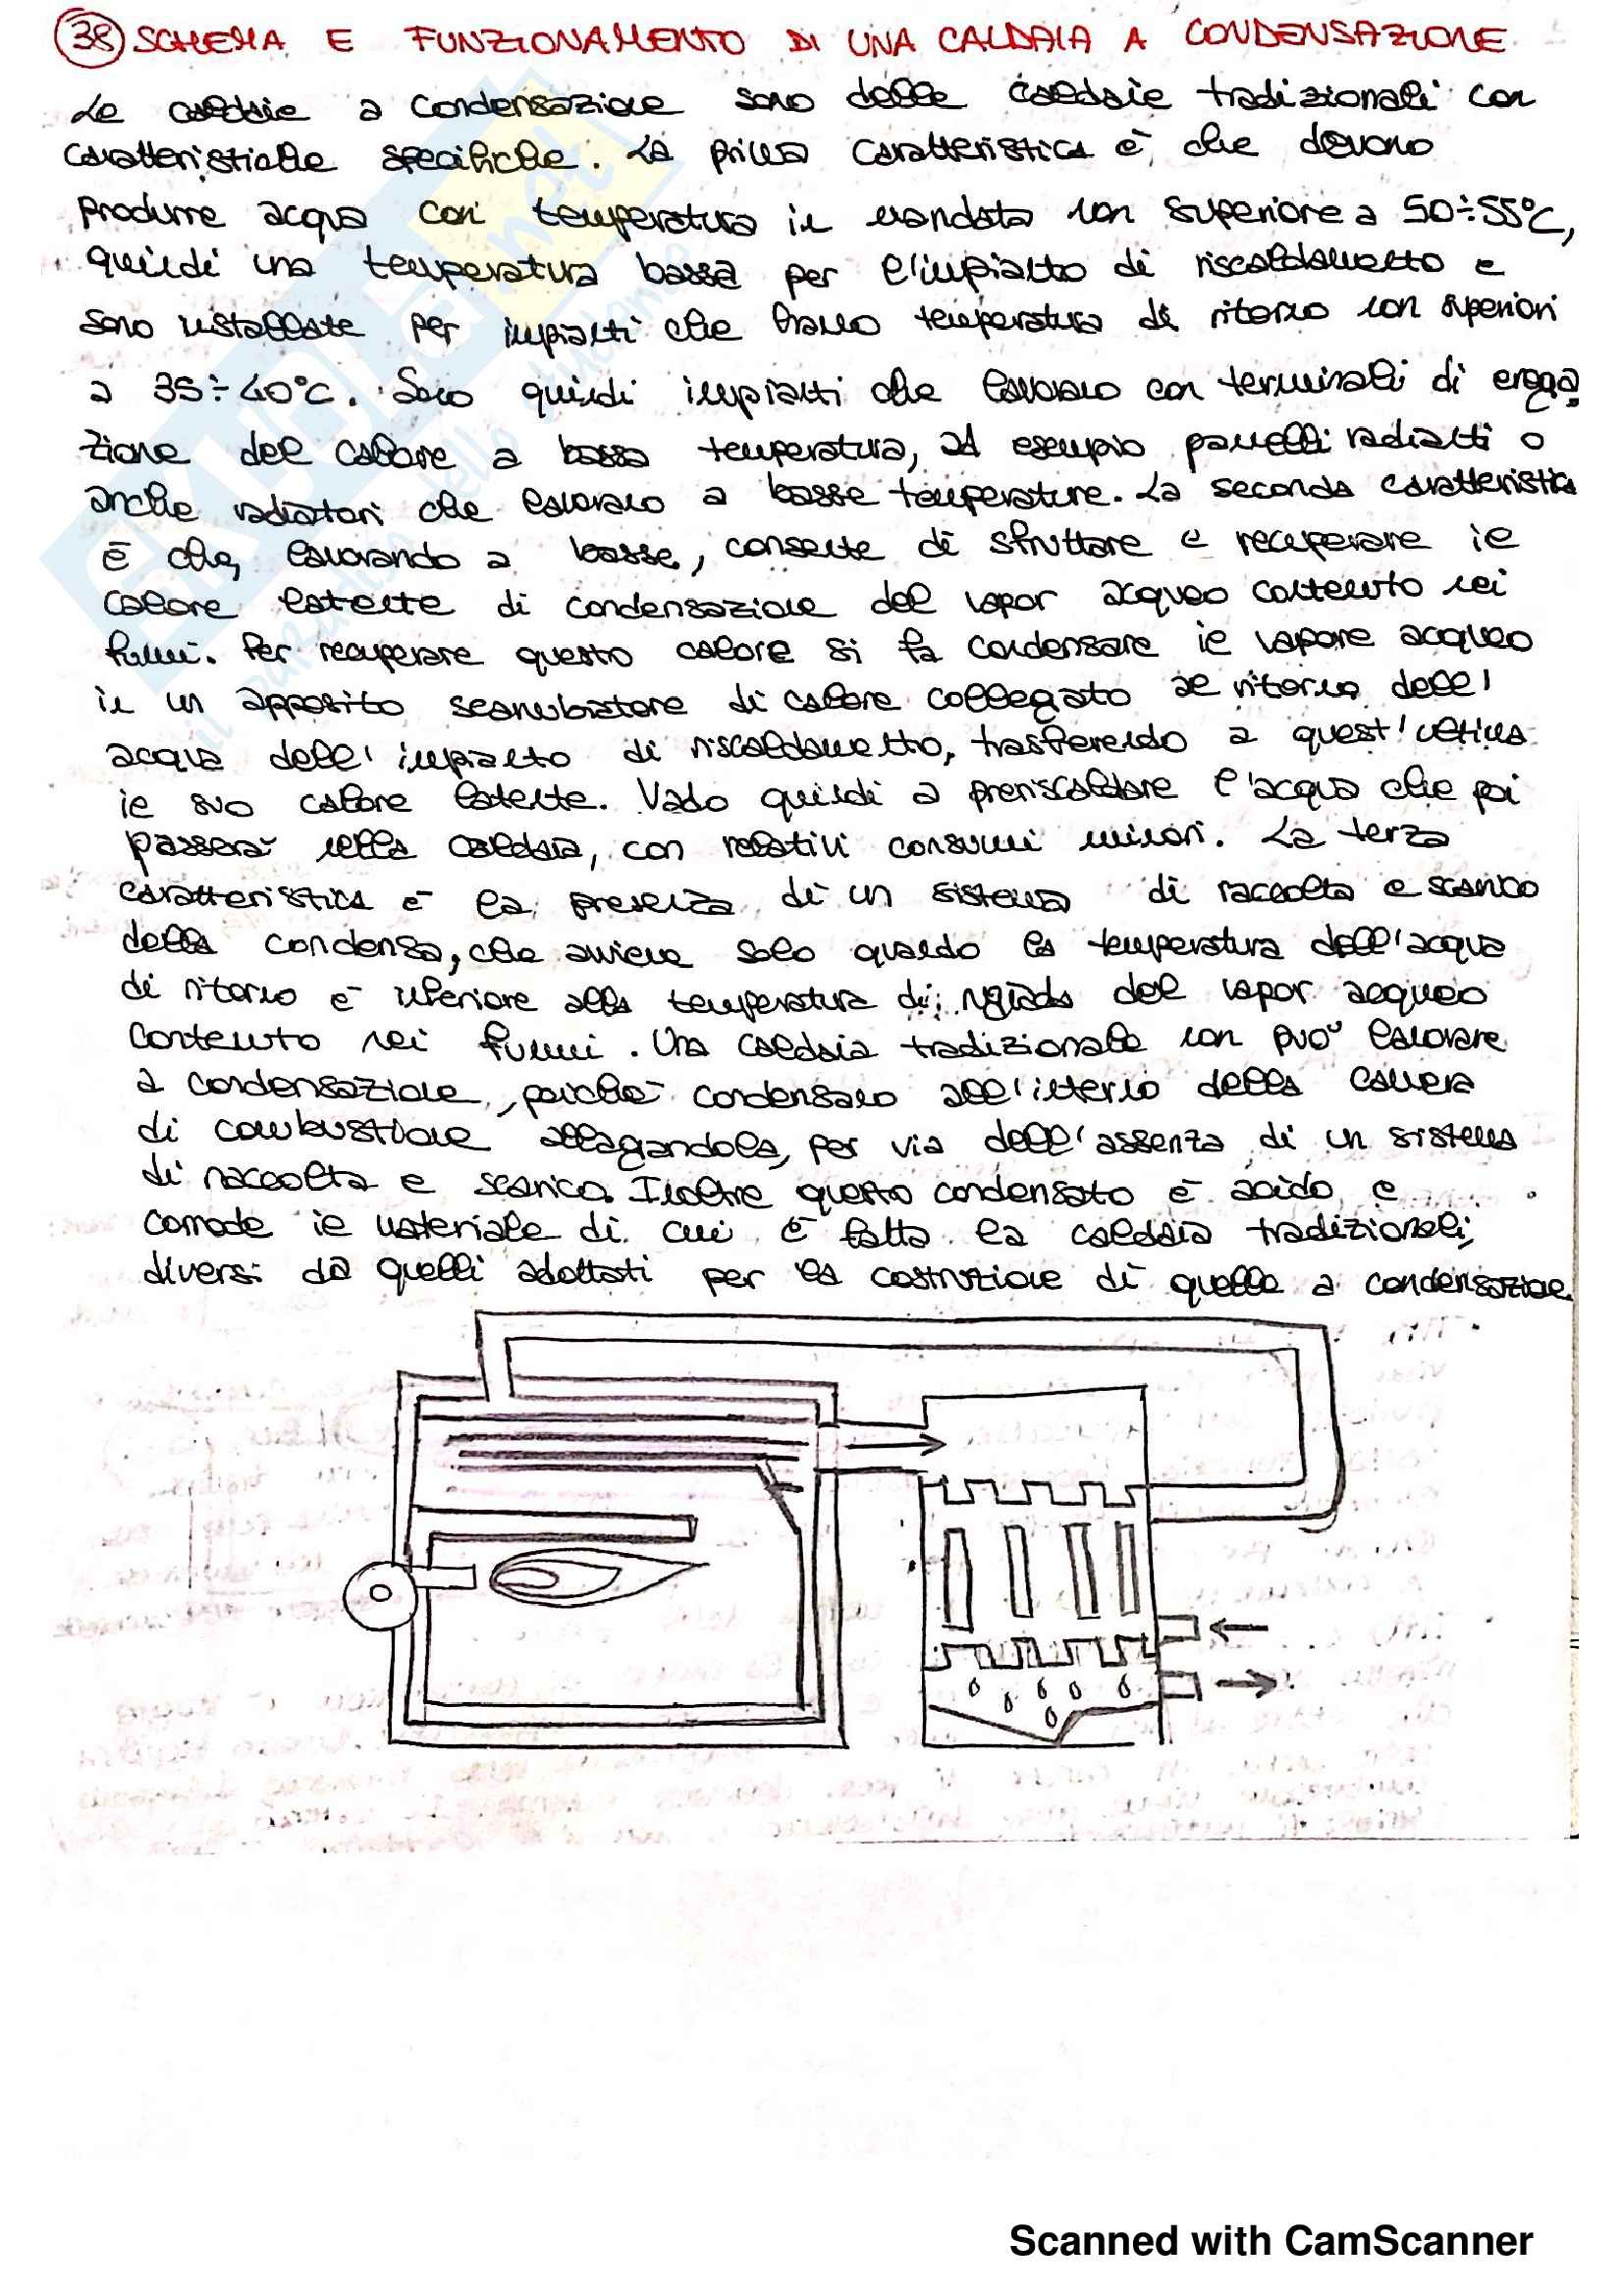 38 SCHEMA E FUNZIONAMENTO DI UNA CALDAIA A CONDENSAZIONE
Le caldaie a condensazione sono delle caldaie tradizionali con
caratteristiche specifiche. La prima caratteristica è che devono
produrre acqua con temperatura in mandata non superiore a 50÷55°C,
quindi una temperatura bassa per l'impianto di riscaldamento e
sono installate per impianti che hanno temperatura di ritorno non superiori
a 35÷40°C. Sono quindi impianti che lavorano con terminali di eroga
zione del calore a bassa temperatura, ad esempio pannelli radianti o
anche radiatori che lavorano a basse temperature. La seconda caratteristica
è che, lavorando a basse, consente di sfruttare e recuperare il
calore latente di condensazione del vapor acqueo contenuto nei
fumi. Per recuperare questo calore si fa condensare il vapore acqueo
in un apposito scambiatore di calore collegato al ritorno dell'
acqua dell'impianto di riscaldamento, trasferendo a quest'ultima
il suo calore latente. Vado quindi a preriscaldare l'acqua che poi
passerà nella caldaia, con relativi consumi minori. La terza
caratteristica è la presenza di un sistema di raccolta e scarico
della condensa, che avviene solo quando la temperatura dell'acqua
di ritorno è inferiore alla temperatura di rugiada del vapor acqueo
contenuto nei fumi. Una caldaia tradizionale non può lavorare
a condensazione, poiché condensano all'interno della camera
di combustione allagandola, per via dell'assenza di un sistema
di raccolta e scarico. Inoltre questo condensato è acido e
corrode il materiale di cui è fatta la caldaia tradizionali,
diversi da quelli adottati per la costruzione di quelle a condensazione.
SKUOLA.net
il paradiso dello studente
Scanned with CamScanner